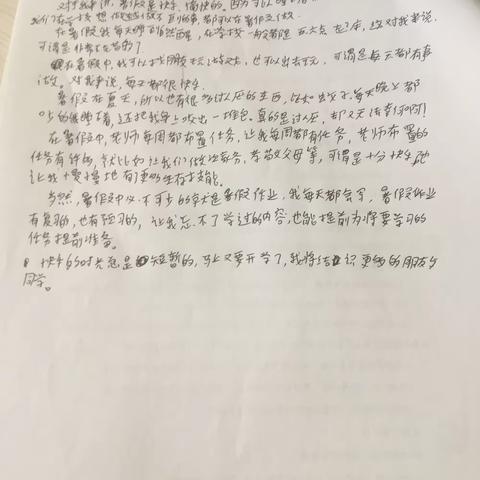 对于我来讲，暑假是快乐、愉快的，因为可以
我们在学校想做越做不到的事，都可以在暑假里做。
在暑假我每天睡到自然醒，在学校一般都是五六点起床，这对我来说，
可谓是非常
在暑假中，我可以找朋友玩游戏，也可以出去玩，可谓是每天都有事
做。对我来说，每天都很快乐。
暑假在夏天，所以也有很多讨人厌的东西，比如蚊子，每天晚上都
的，还把我身上咬出一堆包。真的是讨厌，却又无法奈何啊！
在暑假中，老师每周都布置任务，让我每周都有任务，老师布置的
任务有许多，就比如让我们做家务，孝敬父母等，可谓是十分快乐吧
让我慢慢地有更多的生存技能。
当然，暑假中必不可少的就是暑假作业，我每天都会写，暑假作业
有复习的，也有预习的，让我忘不了学过的内容，也能提前为将要学习的
任务提前准备。
快乐的时光总是短暂的，马上又要开学了，我将结识更多的朋友与
同学。